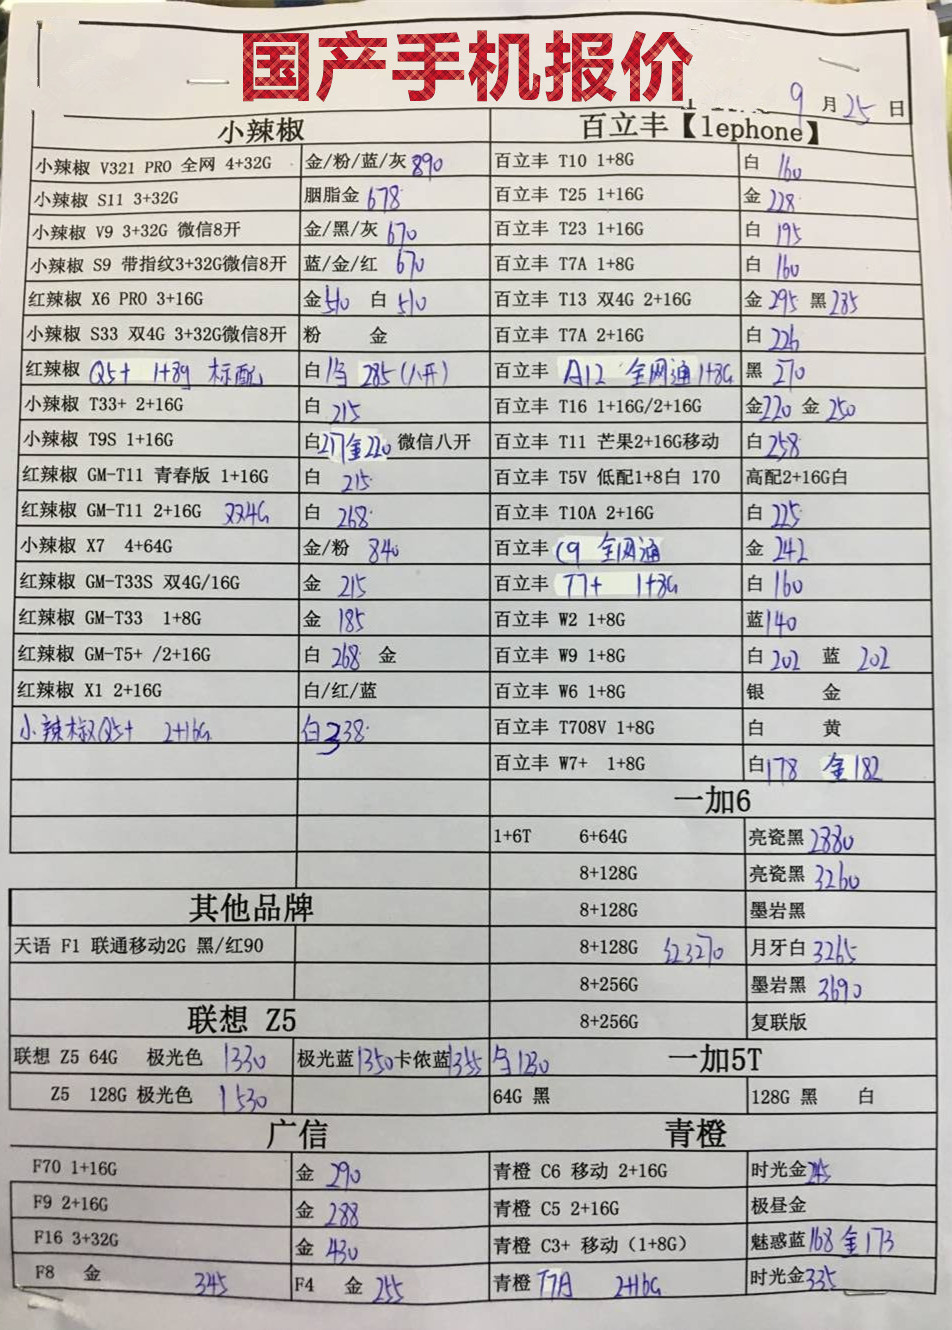 国产手机报价
9月25日
小辣椒 百立丰【lephone】
小辣椒 V321 PRO 全网 4+32G 金/粉/蓝/灰 890 百立丰 T10 1+8G 白 160
小辣椒 S11 3+32G 胭脂金 678 百立丰 T25 1+16G 金 228
小辣椒 V9 3+32G 微信8开 金/黑/灰 670 百立丰 T23 1+16G 白 195
小辣椒 S9 带指纹3+32G微信8开 蓝/金/红 670 百立丰 T7A 1+8G 白 160
红辣椒 X6 PRO 3+16G 金510 白 510 百立丰 T13 双4G 2+16G 金 295 黑 285
小辣椒 S33 双4G 3+32G微信8开 粉 金 百立丰 T7A 2+16G 白 226
红辣椒 Q5+ 1+8g 标配 白 285(八开) 百立丰 A12 全网通 1+8G 黑 270
小辣椒 T33+ 2+16G 白 215 百立丰 T16 1+16G/2+16G 金220 金 250
小辣椒 T9S 1+16G 白217金220 微信八开 百立丰 T11 芒果2+16G移动 白 258
红辣椒 GM-T11 青春版 1+16G 白 215 百立丰 T5V 低配1+8白 170 高配2+16G白
红辣椒 GM-T11 2+16G 双4G 白 268 百立丰 T10A 2+16G 白 225
小辣椒 X7 4+64G 金/粉 840 百立丰 C9 全网通 金 242
红辣椒 GM-T33S 双4G/16G 金 215 百立丰 T7+ 1+8G 白 160
红辣椒 GM-T33 1+8G 金 185 百立丰 W2 1+8G 蓝140
红辣椒 GM-T5+ /2+16G 白 268 金 百立丰 W9 1+8G 白 202 蓝 202
红辣椒 X1 2+16G 白/红/蓝 百立丰 W6 1+8G 银 金
小辣椒Q5+ 2+16G 白338 百立丰 T708V 1+8G 白 黄
百立丰 W7+ 1+8G 白178 金182
一加6
1+6T 6+64G 亮瓷黑 2880
8+128G 亮瓷黑 3260
其他品牌 8+128G 墨岩黑
天语 F1 联通移动2G 黑/红90 8+128G 红3270 月牙白 3265
8+256G 墨岩黑 3690
联想 Z5 8+256G 复联版
联想 Z5 64G 极光色 1330 极光蓝1350卡侬蓝1355 1280 一加5T
Z5 128G 极光色 1530 64G 黑 128G 黑 白
广信 青橙
F70 1+16G 金 290 青橙 C6 移动 2+16G 时光金245
F9 2+16G 金 288 青橙 C5 2+16G 极昼金
F16 3+32G 金 430 青橙 C3+ 移动（1+8G） 魅惑蓝168 金173
F8 金 345 F4 金 255 青橙 T7A 2+16G 时光金335